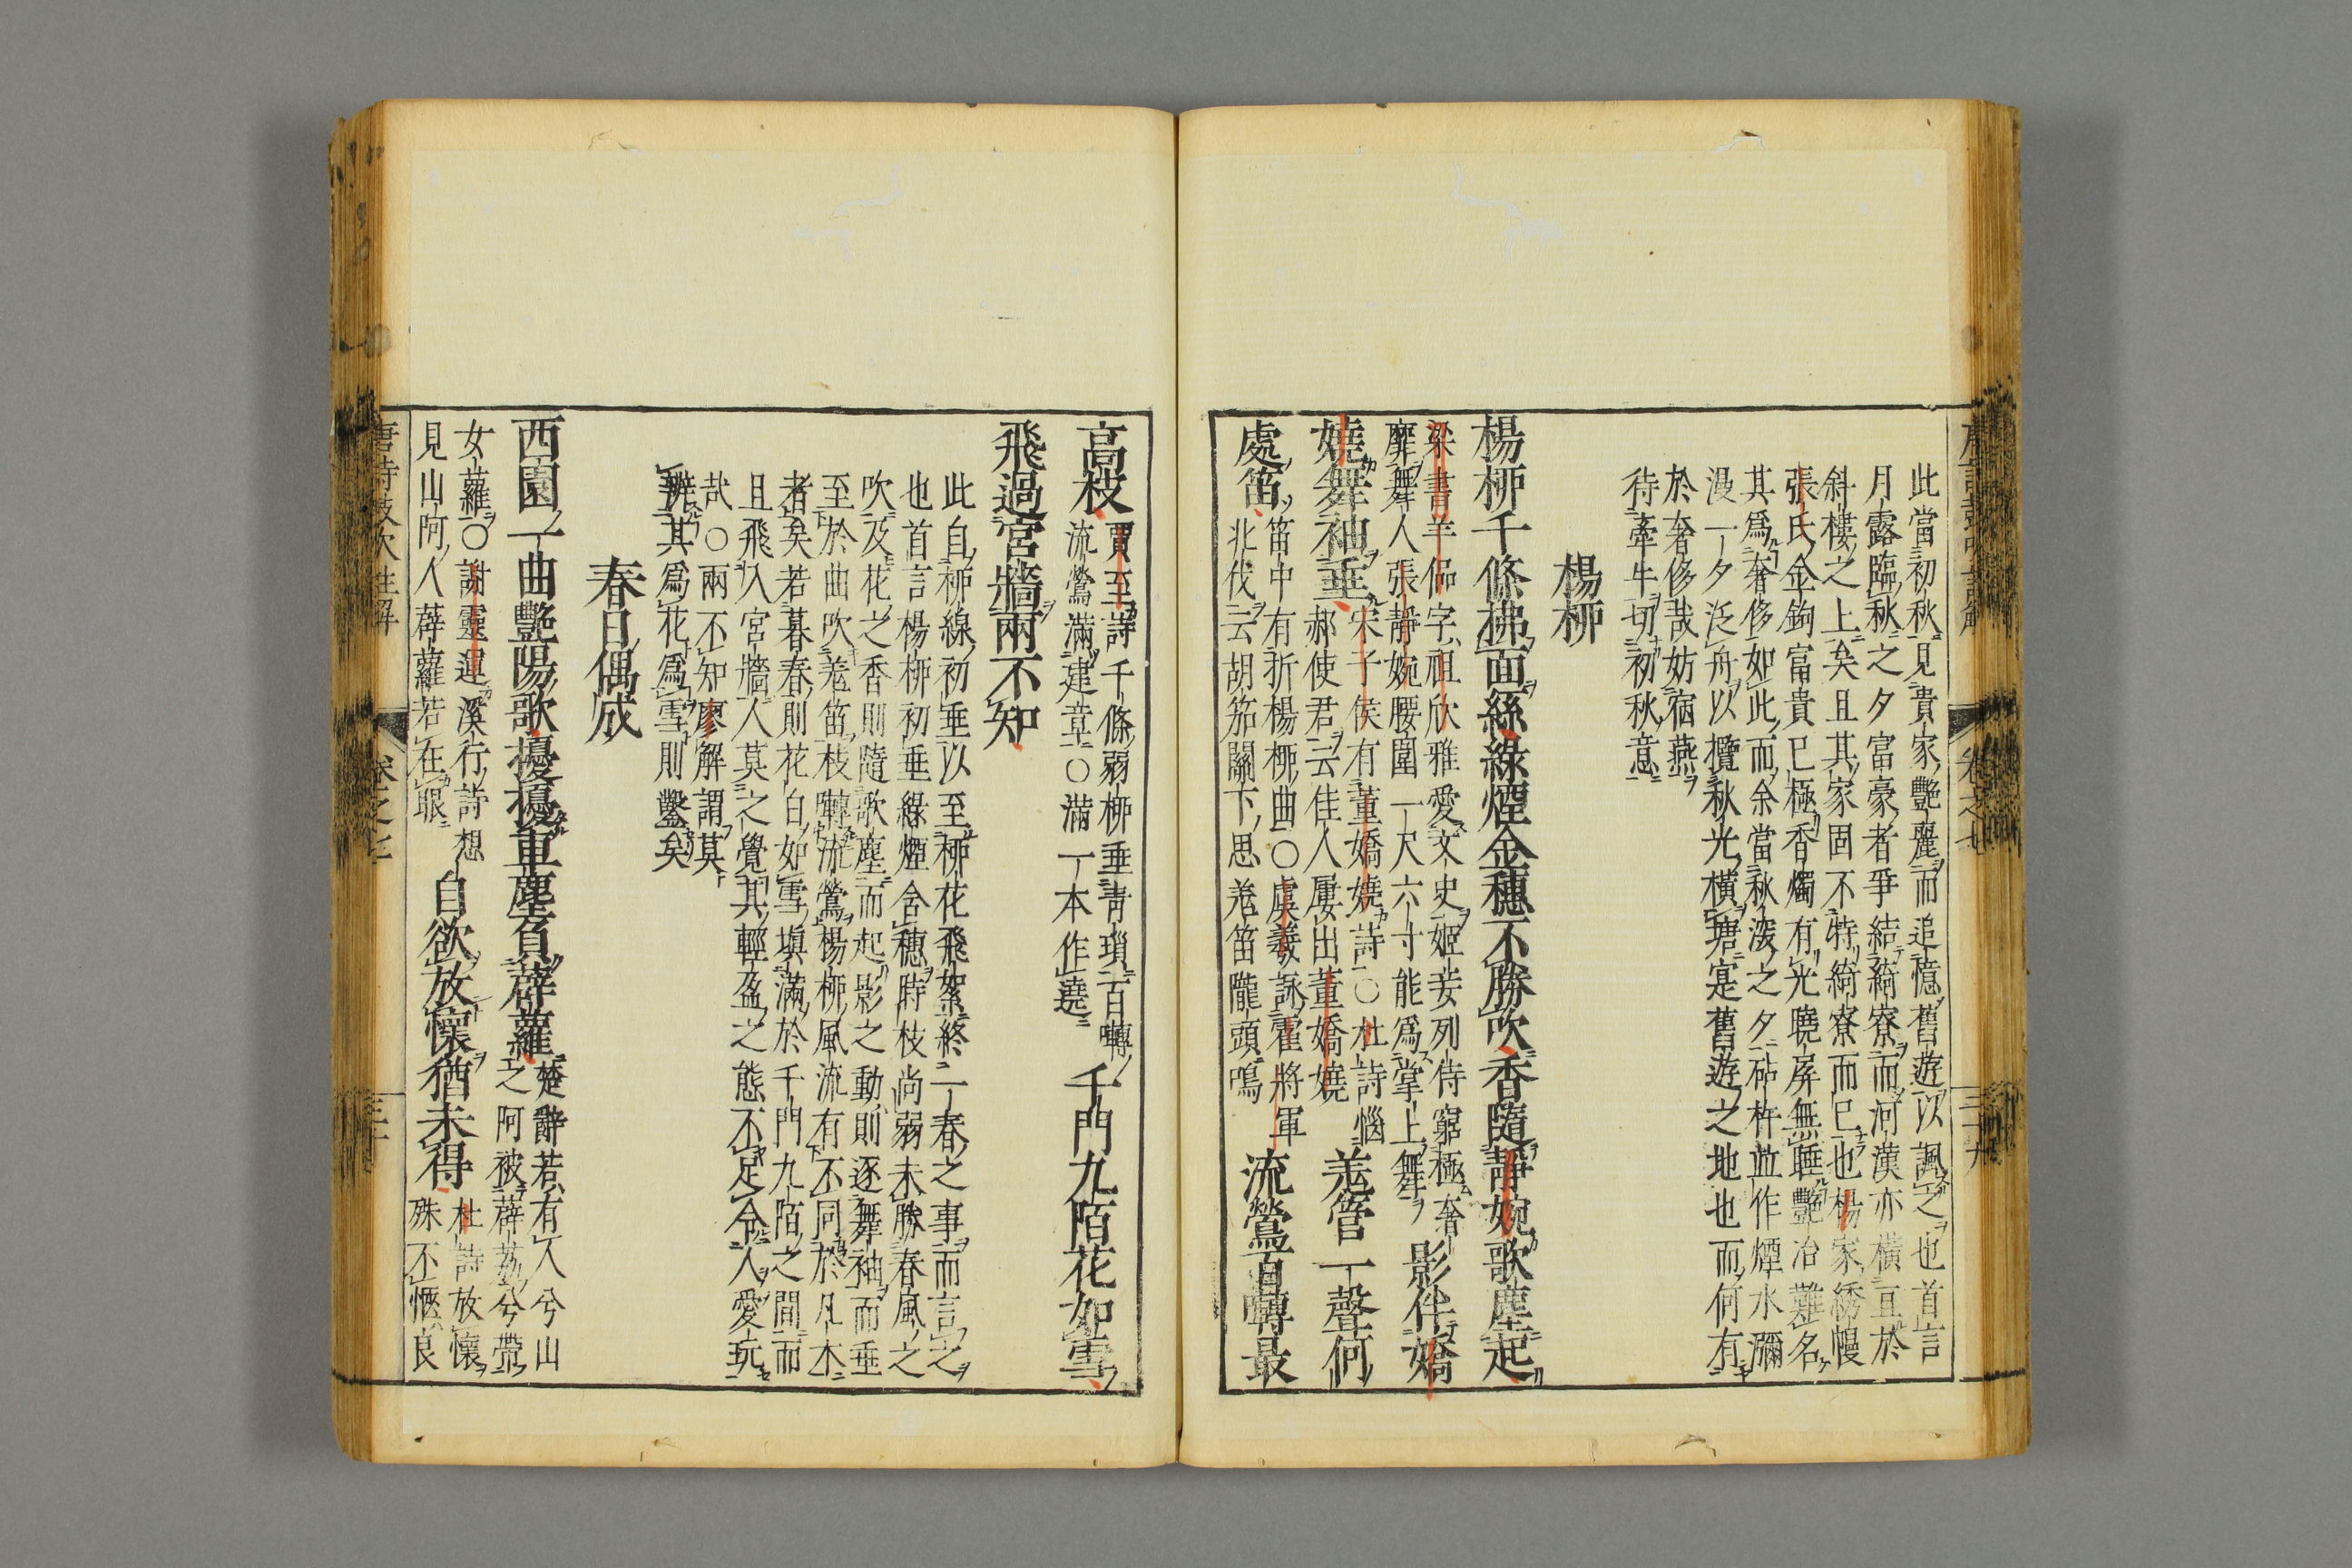 此當初秋見貴家艷麗而追憶舊遊以諷之也首言
月露臨秋之夕富豪者爭結綺寮而河漢亦橫亘於
斜樓之上矣且其家固不特綺寮而已也楊家綉幔
張氏金鉤富貴已極香燭有光曉屏無睡艷冶難名
其為奢侈如此而余當秋深之夕砧杵並作煙水瀰
漫一夕泛舟以攬秋光橫塘寔舊遊之地也而何有
於奢侈哉妨宿燕
待牽牛切初秋意
楊柳
楊柳千條拂面絲綠煙金穗不勝吹香隨靜婉歌塵起
梁書羊侃字祖欣雅愛文史姬妾列侍窮極奢
靡舞人張靜婉腰圍一尺六寸能為掌上舞
影伴嬌
嬈舞袖垂
宋子侯有董嬌嬈詩○杜詩惱
郝使君云佳人屢出董嬌嬈
羌管一聲何
處笛
笛中有折楊柳曲○虞羲詠霍將軍
北伐云胡笳關下思羌笛隴頭鳴
流鶯百囀最
高枝
賈至詩千條弱柳垂青瑣百囀
流鶯滿建章○滿一本作遶
千門九陌花如雪
飛過宮牆兩不知
此自柳線初垂以至柳花飛絮終一春之事而言之
也首言楊柳初垂綠煙含穗時枝尚弱未勝春風之
吹及花之香則隨歌塵而起影之動則逐舞袖而垂
至於曲吹羌笛枝囀流鶯楊柳風流有不同於凡木
者矣若暮春則花白如雪填滿於千門九陌之間而
且飛入宮牆人莫之覺其輕盈之態不足令人愛玩
哉○兩不知廖解謂莫
辨其為花為雪則鑿矣
春日偶成
西園一曲艷陽歌擾擾車塵負薜蘿
楚辭若有人兮山
之阿被薜荔兮帶
女蘿○謝靈運溪行詩想
見山阿人薜蘿若在眼
自欲放懷猶未得
杜詩放懷
殊不愜良
唐詩鼓吹註解
卷之七
三十